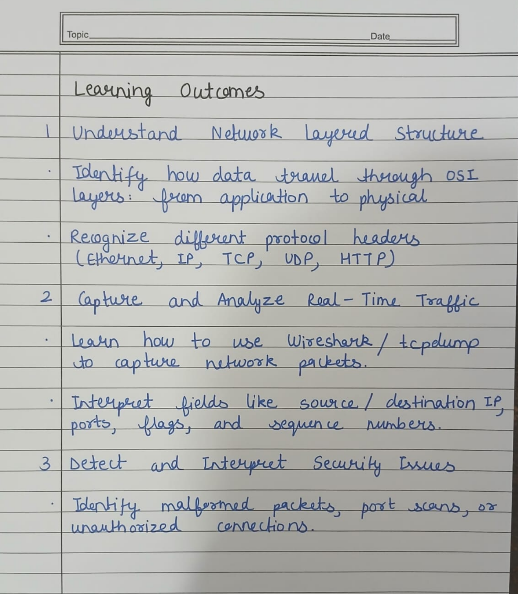 Topic Date
Learning Outcomes
1 Understand Network layered Structure
· Identify how data travel through OSI
layers: from application to physical
· Recognize different protocol headers
(Ethernet, IP, TCP, UDP, HTTP)
2 Capture and Analyze Real-Time Traffic
· Learn how to use Wireshark / tcpdump
to capture network packets.
· Interpret fields like source / destination IP,
ports, flags, and sequence numbers.
3 Detect and Interpret Security Issues
· Identify malformed packets, port scans, or
unauthorized connections.